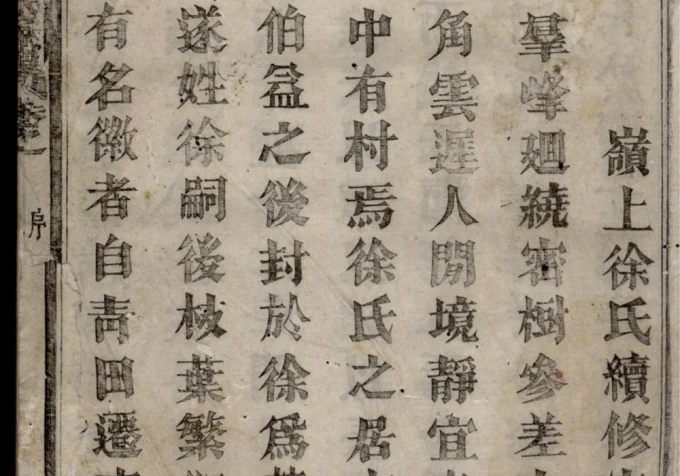 嶺上徐氏續修
羣峰廻繞密樹參差
角雲遲人閒境靜宜
中有村焉徐氏之居
伯益之後封於徐爲
遂姓徐嗣後枝葉繁
有名徽者自青田遷
序